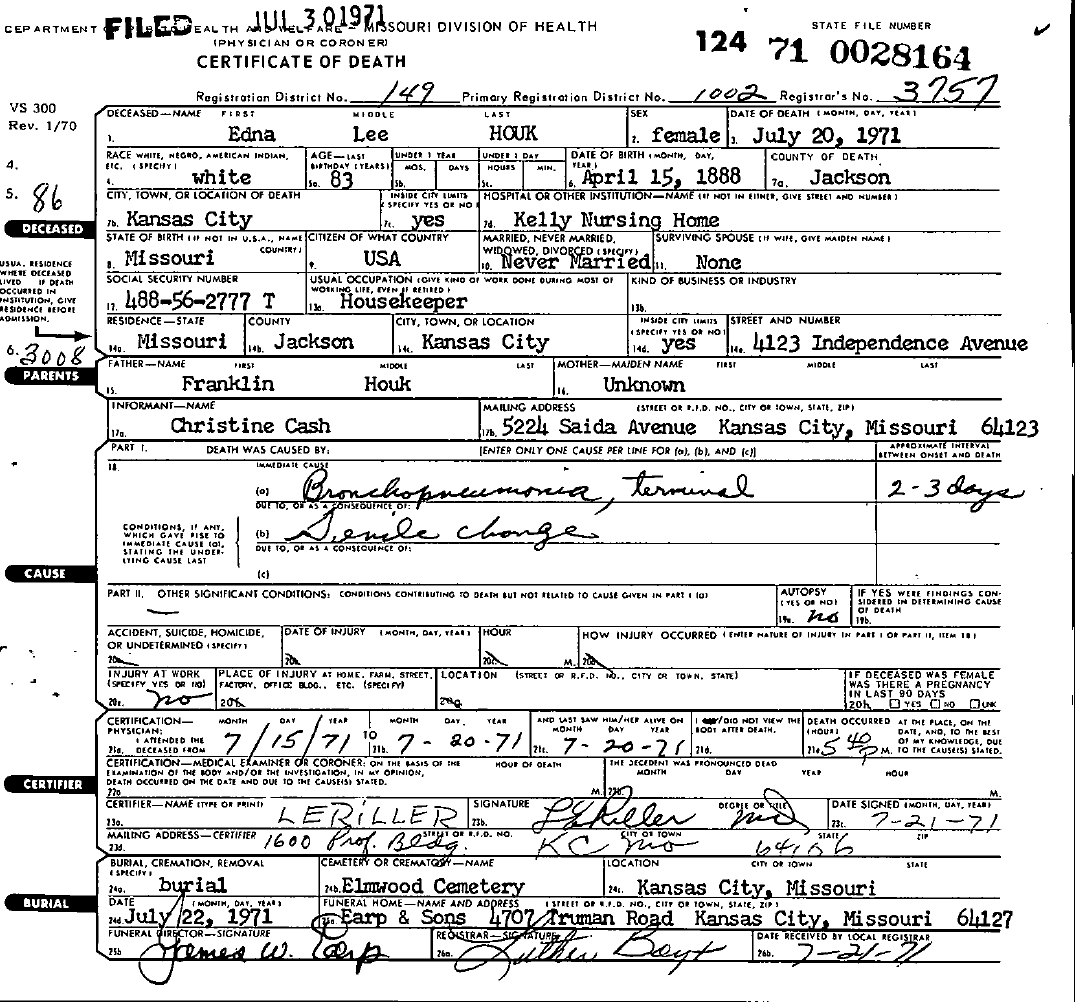 DEPARTMENT FILED HEALTH AND WELFARE – MISSOURI DIVISION OF HEALTH
JUL 30 1971
(PHYSICIAN OR CORONER)
CERTIFICATE OF DEATH
STATE FILE NUMBER
124 71 0028164
Registration District No. 149 Primary Registration District No. 1002 Registrar's No. 3757
VS 300
Rev. 1/70
4.
5. 86
DECEASED
USUAL RESIDENCE WHERE DECEASED LIVED IF DEATH OCCURRED IN INSTITUTION, GIVE RESIDENCE BEFORE ADMISSION.
6. 3008
PARENTS
CAUSE
CERTIFIER
BURIAL
DECEASED—NAME FIRST MIDDLE LAST SEX DATE OF DEATH (MONTH, DAY, YEAR)
1. Edna Lee HOUK 2. female 3. July 20, 1971
RACE WHITE, NEGRO, AMERICAN INDIAN, ETC. (SPECIFY) AGE—LAST BIRTHDAY (YEARS) UNDER 1 YEAR MOS. DAYS UNDER 1 DAY HOURS MIN. DATE OF BIRTH (MONTH, DAY, YEAR) COUNTY OF DEATH
4. white 5a. 83 5b. 5c. 6. April 15, 1888 7a. Jackson
CITY, TOWN, OR LOCATION OF DEATH INSIDE CITY LIMITS (SPECIFY YES OR NO) HOSPITAL OR OTHER INSTITUTION—NAME (IF NOT IN EITHER, GIVE STREET AND NUMBER)
7b. Kansas City 7c. yes 7d. Kelly Nursing Home
STATE OF BIRTH (IF NOT IN U.S.A., NAME COUNTRY) CITIZEN OF WHAT COUNTRY MARRIED, NEVER MARRIED, WIDOWED, DIVORCED (SPECIFY) SURVIVING SPOUSE (IF WIFE, GIVE MAIDEN NAME)
8. Missouri 9. USA 10. Never Married 11. None
SOCIAL SECURITY NUMBER USUAL OCCUPATION (GIVE KIND OF WORK DONE DURING MOST OF WORKING LIFE, EVEN IF RETIRED) KIND OF BUSINESS OR INDUSTRY
12. 488-56-2777 T 13a. Housekeeper 13b.
RESIDENCE—STATE COUNTY CITY, TOWN, OR LOCATION INSIDE CITY LIMITS (SPECIFY YES OR NO) STREET AND NUMBER
14a. Missouri 14b. Jackson 14c. Kansas City 14d. yes 14e. 4123 Independence Avenue
FATHER—NAME FIRST MIDDLE LAST MOTHER—MAIDEN NAME FIRST MIDDLE LAST
15. Franklin Houk 16. Unknown
INFORMANT—NAME MAILING ADDRESS (STREET OR R.F.D. NO., CITY OR TOWN, STATE, ZIP)
17a. Christine Cash 17b. 5224 Saida Avenue Kansas City, Missouri 64123
PART I. DEATH WAS CAUSED BY: [ENTER ONLY ONE CAUSE PER LINE FOR (a), (b), AND (c)] APPROXIMATE INTERVAL BETWEEN ONSET AND DEATH
18. IMMEDIATE CAUSE
(a) Bronchopneumonia, terminal 2-3 days
DUE TO, OR AS A CONSEQUENCE OF:
CONDITIONS, IF ANY, WHICH GAVE RISE TO IMMEDIATE CAUSE (a), STATING THE UNDERLYING CAUSE LAST
(b) Senile change
DUE TO, OR AS A CONSEQUENCE OF:
(c)
PART II. OTHER SIGNIFICANT CONDITIONS: CONDITIONS CONTRIBUTING TO DEATH BUT NOT RELATED TO CAUSE GIVEN IN PART I (a) AUTOPSY (YES OR NO) IF YES WERE FINDINGS CONSIDERED IN DETERMINING CAUSE OF DEATH
— 19a. no 19b.
ACCIDENT, SUICIDE, HOMICIDE, OR UNDETERMINED (SPECIFY) DATE OF INJURY (MONTH, DAY, YEAR) HOUR HOW INJURY OCCURRED (ENTER NATURE OF INJURY IN PART I OR PART II, ITEM 18)
20a. 20b. 20c. M. 20d.
INJURY AT WORK (SPECIFY YES OR NO) PLACE OF INJURY AT HOME, FARM, STREET, FACTORY, OFFICE BLDG., ETC. (SPECIFY) LOCATION (STREET OR R.F.D. NO., CITY OR TOWN, STATE) IF DECEASED WAS FEMALE WAS THERE A PREGNANCY IN LAST 90 DAYS
20e. no 20f. 20g. 20h. YES NO UNK
CERTIFICATION—PHYSICIAN: MONTH DAY YEAR MONTH DAY YEAR AND LAST SAW HIM/HER ALIVE ON MONTH DAY YEAR I DID/DID NOT VIEW THE BODY AFTER DEATH. DEATH OCCURRED (HOUR) AT THE PLACE, ON THE DATE, AND, TO THE BEST OF MY KNOWLEDGE, DUE TO THE CAUSE(S) STATED.
21a. I ATTENDED THE DECEASED FROM 7/15/71 TO 21b. 7-20-71 21c. 7-20-71 21d. 21e. 5 40 P M.
CERTIFICATION—MEDICAL EXAMINER OR CORONER: ON THE BASIS OF THE EXAMINATION OF THE BODY AND/OR THE INVESTIGATION, IN MY OPINION, DEATH OCCURRED ON THE DATE AND DUE TO THE CAUSE(S) STATED. HOUR OF DEATH THE DECEDENT WAS PRONOUNCED DEAD MONTH DAY YEAR HOUR
22a. M. 22b. M.
CERTIFIER—NAME (TYPE OR PRINT) SIGNATURE DEGREE OR TITLE DATE SIGNED (MONTH, DAY, YEAR)
23a. LERILLER 23b. MD 23c. 7-21-71
MAILING ADDRESS—CERTIFIER STREET OR R.F.D. NO. CITY OR TOWN STATE ZIP
23d. 1600 Prof. Bldg. KC Mo 64106
BURIAL, CREMATION, REMOVAL (SPECIFY) CEMETERY OR CREMATORY—NAME LOCATION CITY OR TOWN STATE
24a. burial 24b. Elmwood Cemetery 24c. Kansas City, Missouri
DATE (MONTH, DAY, YEAR) FUNERAL HOME—NAME AND ADDRESS (STREET OR R.F.D. NO., CITY OR TOWN, STATE, ZIP)
24d. July 22, 1971 25a. Earp & Sons 4707 Truman Road Kansas City, Missouri 64127
FUNERAL DIRECTOR—SIGNATURE REGISTRAR—SIGNATURE DATE RECEIVED BY LOCAL REGISTRAR
25b. James W. Earp 26a. Luther Boyt 26b. 7-21-71